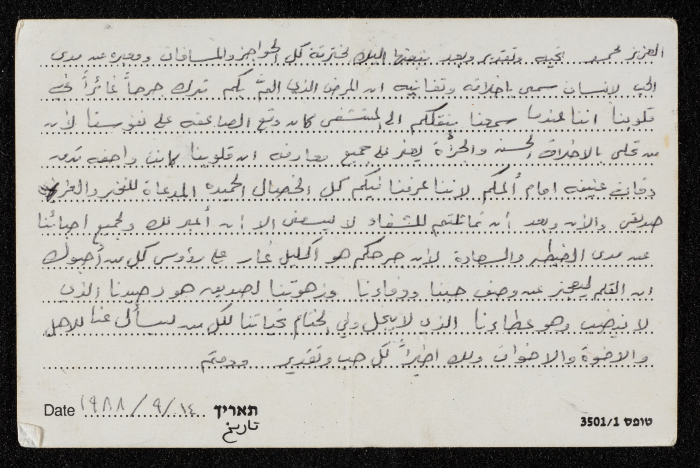 العزيز محمد تحيه وتقدير وبعد نبعثها اليك مخترقة كل الحواجز والمسافات ومعبره عن مدى
الحب لإنسان سمى بأخلاقه وتفانيه ان المرض الذي المّ بكم ترك جرحاً غائراً في
قلوبنا اننا عندما سمعنا بنقلكم الى المستشفى كان وقع الصاعقه على نفوسنا لأن
من تحلى بالاخلاق الحسنه والجرأة يعز على جميع معارفه ان قلوبنا كانت واجفه تدق
دقات عنيفه امام ألمكم لاننا عرفنا فيكم كل الخصال الحميده المدعاة للفخر والعزه
صديقي والآن وبعد أن تماثلتم للشفاء لا يسعني الا ان أعبر لك ولجميع احبائنا
عن مدى الغبطه والسعادة لأن جرحكم هو اكليل غار على رؤوس كل من أحبوك
ان القلم ليعجز عن وصف حبنا ووفاءنا وزهوتنا لصديق هو رصيدنا الذي
لا ينضب وهو عطاءنا الذي لا يبخل ولي الختام تحياتنا لكل من يسأل عنا للاهل
والاخوة والاخوات ولك اخيراً كل حب وتقدير ودمتم
Date ١٩٨٨/٩/١٤ תאריך
تاريخ
טופס 3501/1